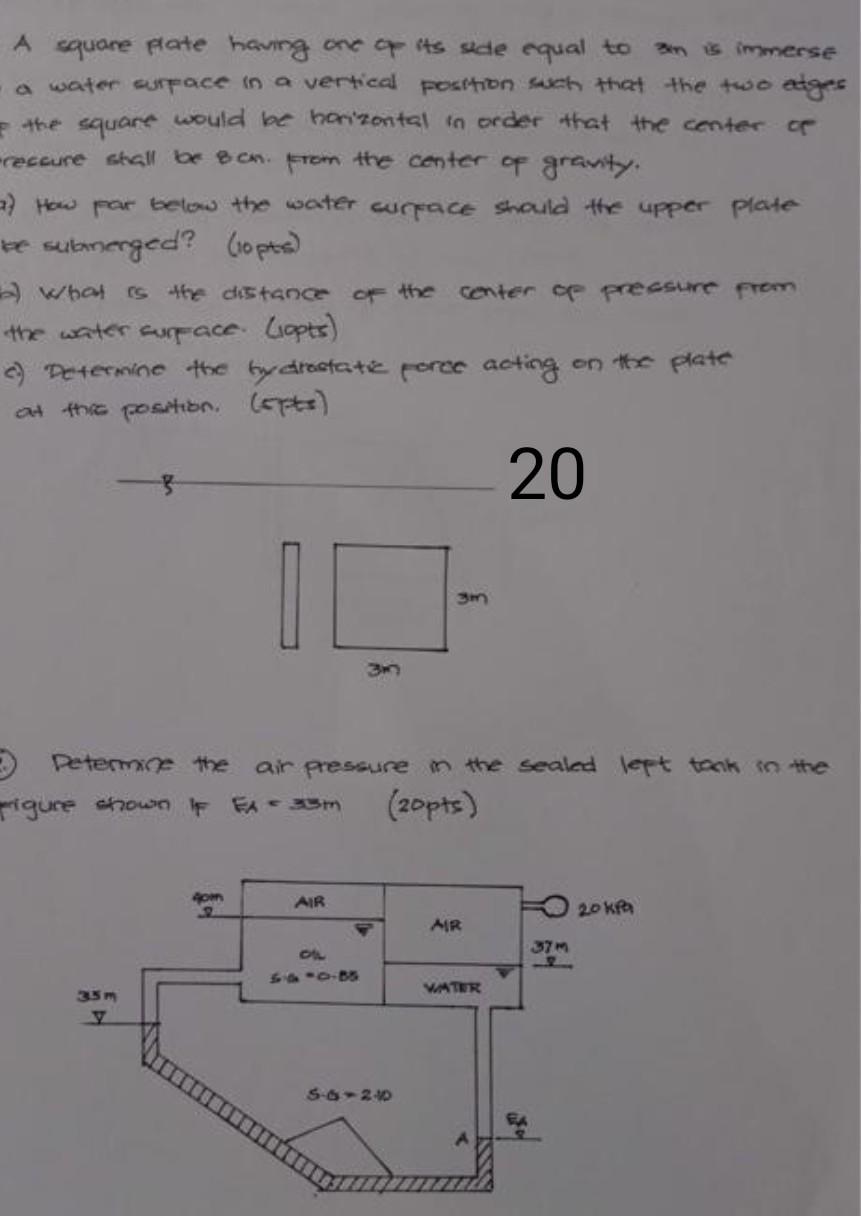 A square plate having one of its side equal to 3m is immerse
a water surface in a vertical position such that the two edges
the square would be horizontal in order that the center of
ressure shall be 8cm. from the center of gravity.
a) How far below the water surface should the upper plate
be submerged? (10pts)
b) What is the distance of the center of pressure from
the water surface. (10pts)
c) Determine the hydrostatic force acting on the plate
at this position. (5pts)
20
3m
3m
Determine the air pressure in the sealed left tank in the
figure shown if EA = 33m (20pts)
40m
AIR
AIR
20 kPa
OIL
S.G = 0.85
37m
WATER
35m
S.G = 2.10
A
EA